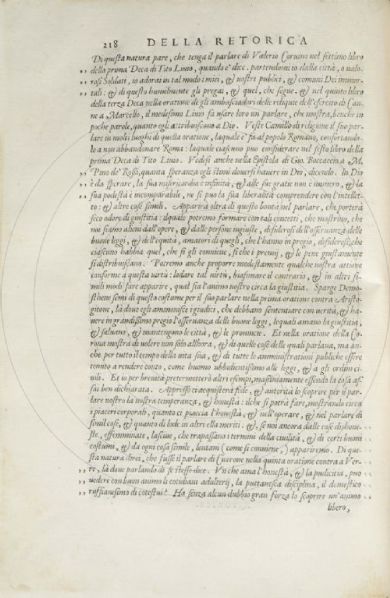 218 DELLA RETORICA
Di questa natura pare, che tenga il parlare di Valerio Coruino nel settimo libro
della prima Deca di Tito Liuio, quando e' dice. partendomi io dalla città, o valo-
rosi Soldati, io adorai in tal modo i miei, & i nostri publici, & comuni Dei immor-
tali: & di questo humilmente gli pregai, & quel, che segue. & nel quinto libro
della terza Deca nella oratione de gli ambasciadori delle reliquie dell'esercito di Can-
ne a Marcello, il medesimo Liuio fa usare loro un parlare, che mostra, benche in
poche parole, quanto egli attribuiscano a Dio. Veste Camillo di religione il suo par-
lare in molti luoghi di quella oratione, laquale e' fa al popolo Romano, confortando-
lo a non abbandonare Roma: laquale ciascuno puo considerare nel sesto libro della
prima Deca di Tito Liuio. Vedesi anche nella Epistola di Gio. Boccaccio a M.
Pino de' Rossi, quanta speranza egli stimi douersi hauere in Dio, dicendo. In Dio
è da sperare, la sua misericordia è infinita, & alle sue gratie non è numero, & la
sua potestà è incomparabile, ne si può la sua liberalità comprendere con l'intellet-
to: & altre cose simili. Apparirà oltra di questo bontà nel parlare, che porterà
seco odore di giustitia: ilquale potremo formare con tali concetti, che mostrino, che
noi siamo alieni dall'opere, & dalle persone ingiuste, desiderosi dell'osseruanza delle
buone leggi, & dell'equità, amatori di quegli, che l'hanno in pregio, desiderosi, che
ciascuno habbia quel, che se gli conuiene, & che i premij, & le pene giustamente
si distribuiscano. Potremo anche proporre modestamente qualche nostra attione
conforme a questa virtù: lodare tal virtù, biasimare il contrario, & in altre si-
mili modi fare apparire, qual sia l'animo nostro circa la giustitia. Sparge Demo-
sthene semi di questo costume per il suo parlare nella prima oratione contra Aristo-
gitone, là doue egli ammonisce i giudici, che debbano sententiare con verità, & ha-
uere in grandissimo pregio l'osseruanza delle buone leggi, lequali amano la giustitia,
& saluano, & mantengono le città, & le prouincie. Et nella oratione della Co-
rona mostra di volere non solo allhora, & di quelle cose delle quali parlaua, ma an-
che per tutto il tempo della vita sua, & di tutte le amministrationi publiche essere
tenuto a rendere conto, come huomo ubbidientissimo alle leggi, & a gli ordini ci-
uili. Et io per breuità pretermetterò altri esempi, massimamente essendo la cosa as-
sai ben dichiarata. Appresso ci acquisterà fede, & autorità lo scoprire per il par-
lare nostro la nostra temperanza, & honestà: il che si potrà fare, mostrando circa
i piaceri corporali, quanto ci piaccia l'honestà, & nell'operare, & nel parlare di
simil cose, & quanto di lode in altrui ella meriti: &, se noi ancora dalle cose dishone-
ste, effeminate, lasciue, che trapassano i termini della ciuilità, & di certi buoni
costumi, & da ogni cosa simile, lontani (come si conuiene) appariremo. Di que-
sta natura direi, che fusse il parlare di Cicerone nella quinta oratione contra a Ver-
re, là doue parlando di se stesso dice. Vn che ama l'honestà, & la pudicitia, può
vedere con buon animo i cotidiani adulterij, la puttanesca disciplina, il domestico
ruffianesimo di cotestui? Ha senza alcun dubbio gran forza lo scoprire un'animo
libero,